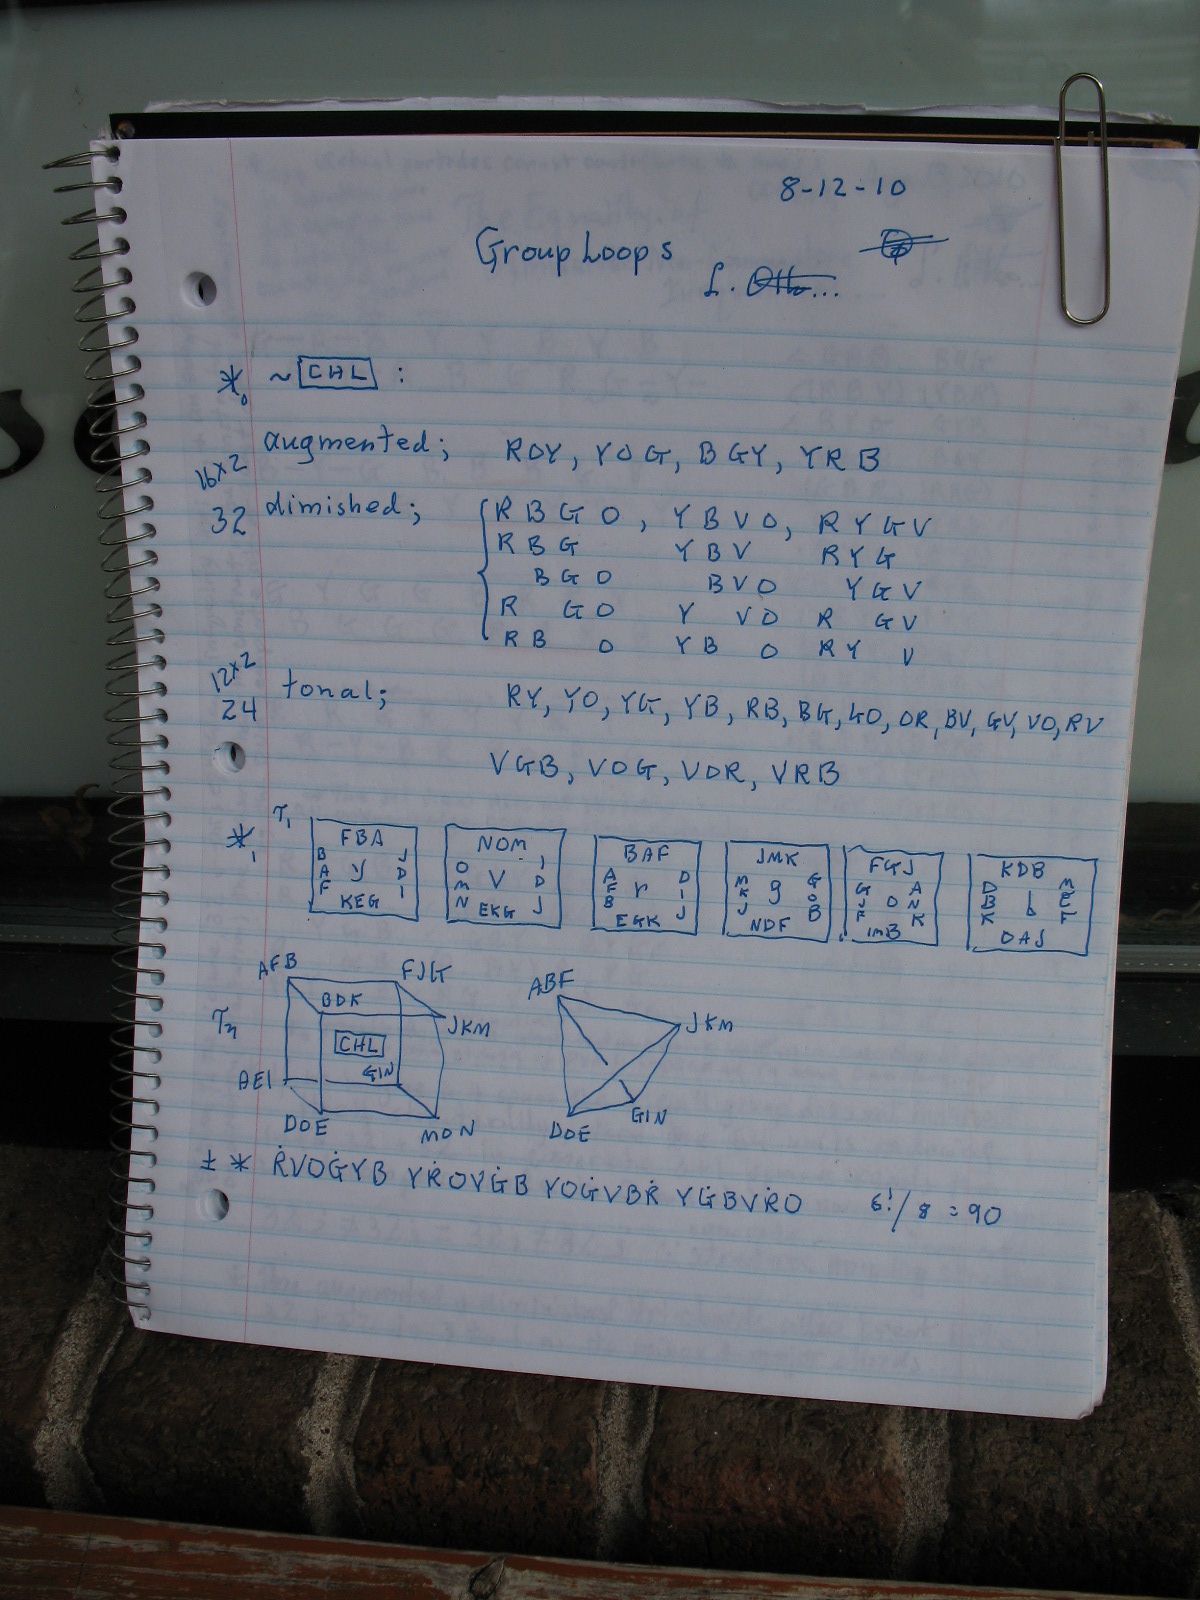 8-12-10
Group Loops
L. Otto...
*0 ~ CHL :
augmented; ROY, YOG, BGY, YRB
16x2
32 dimished; RBGO, YBVO, RYGV
RBG YBV RYG
BGO BVO YGV
R GO Y VO R GV
RB O YB O RY V
12x2
24 tonal; RY, YO, YG, YB, RB, BG, GO, OR, BV, GV, VO, RV
VGB, VOG, VOR, VRB
*1 T1
FBA NOM BAF JMK FGJ KDB
B J O I A D M G G A D M
A y D M V D F r I K g O J O N B b E
F I N J B J J B F K K F
KEG EKG EGK NDF IMB OAJ
AFB FJG ABF
BDK JKM JKM
Tn CHL
AEI GIN GIN
DOE MON DOE
± * ṘVOĠYB YṘOVĠB YOĠVBṘ YĠBVṘO 6!/8 = 90